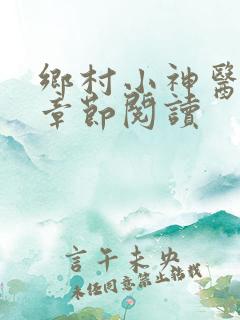 鄉村小神醫
章節閱讀
言午未央
未經同意禁止轉載